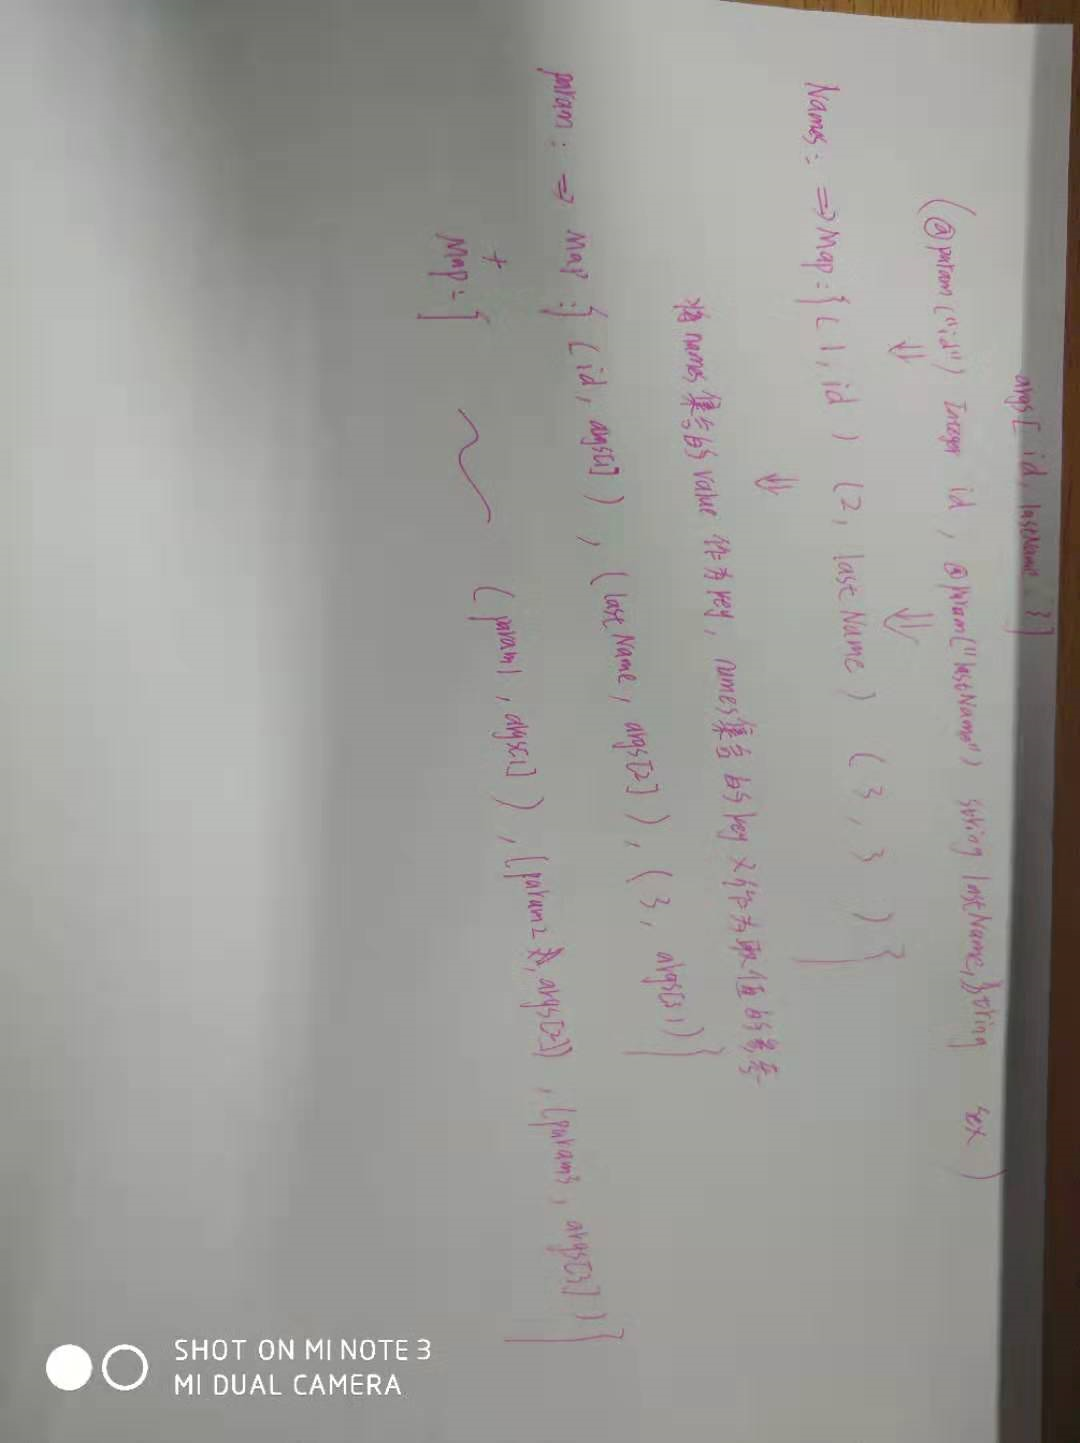 args[ id, lastName }]
(@param("id") Integer id, @param("lastName") string lastName, string sex )
⇓ ⇓
Names: ⇒Map={(1, id ) (2, lastName ) ( 3, 3 )}
⇓
将names集合的value 作为key, names集合的key 又作为取值的参考
param: ⇒ Map:{ (id, args[1] ) , (lastName, args[2] ) , (3, args[3])}
+
Map={ (param1, args[1] ) , (param2, args[2]) , (param3, args[3] )}
SHOT ON MI NOTE 3
MI DUAL CAMERA